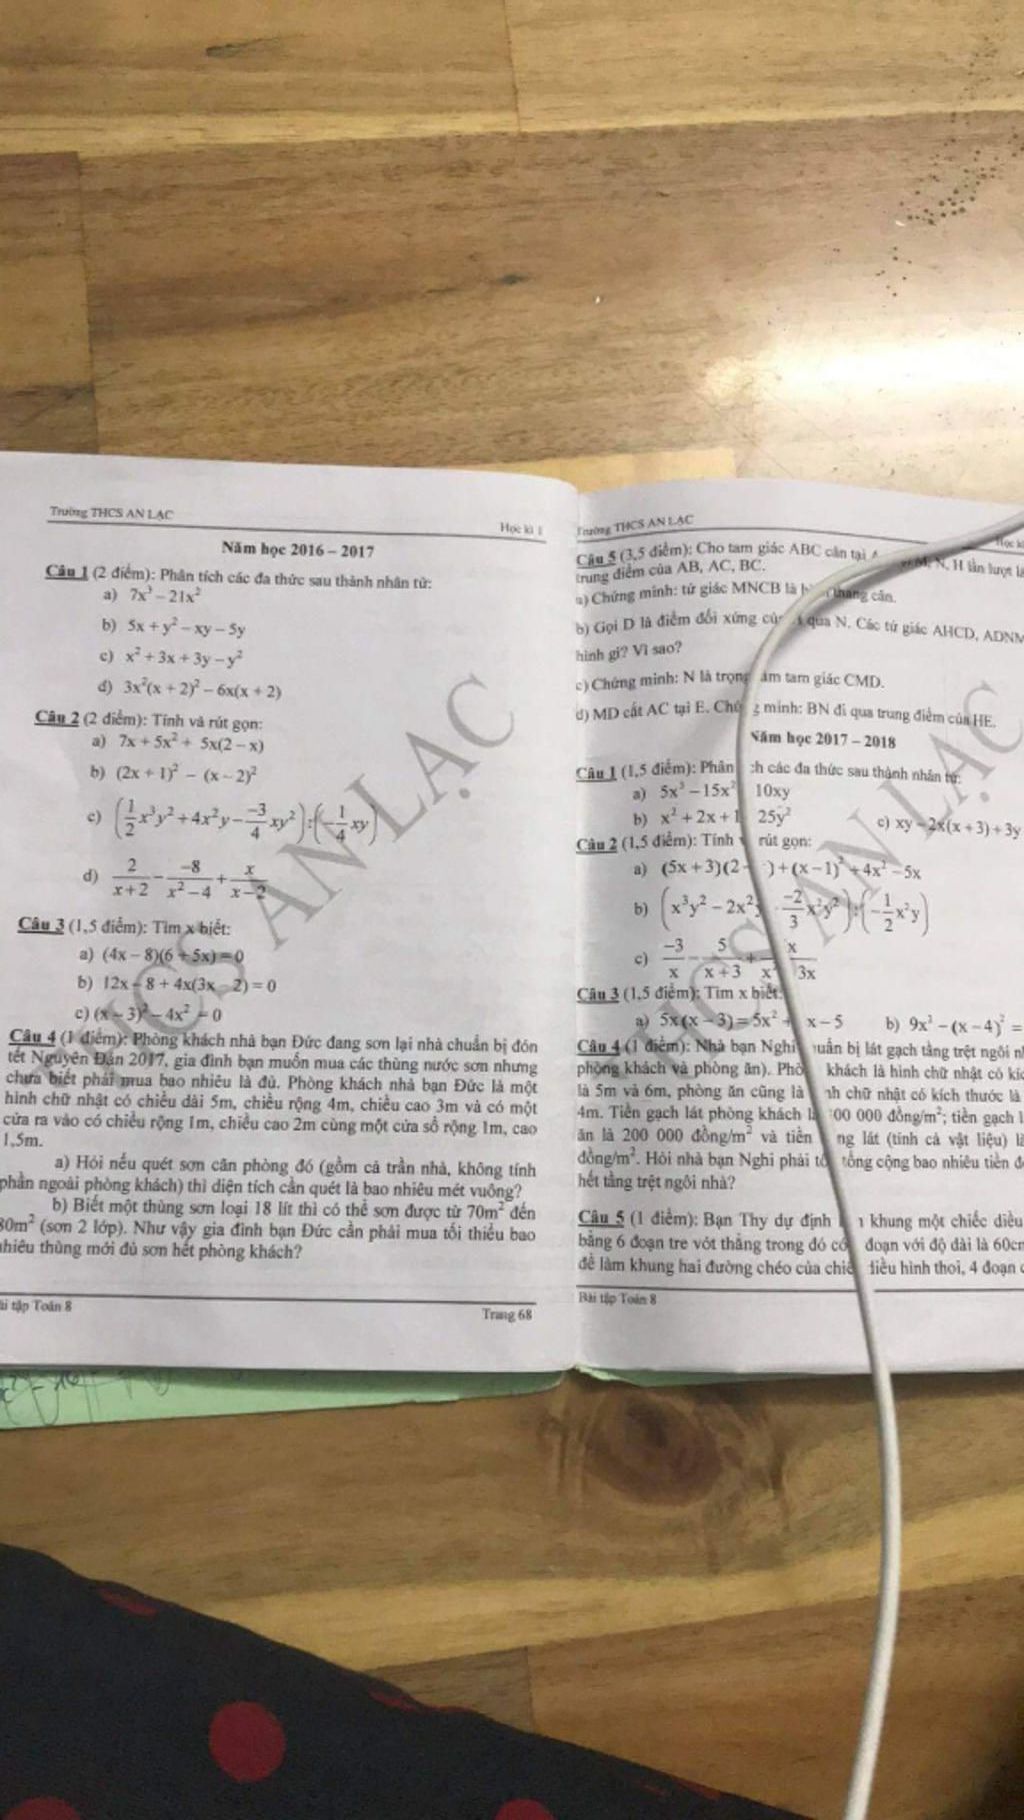 Trường THCS AN LẠC
Học kì 1
Năm học 2016 – 2017
Câu 1 (2 điểm): Phân tích các đa thức sau thành nhân tử:
a) 7x³ – 21x²
b) 5x + y² – xy – 5y
c) x² + 3x + 3y – y²
d) 3x²(x + 2)² – 6x(x + 2)
Câu 2 (2 điểm): Tính và rút gọn:
a) 7x + 5x² + 5x(2 – x)
b) (2x + 1)² – (x – 2)²
c) (1/2 x³y² + 4x²y – -3/4 xy²) : (-1/4 xy)
d) 2/(x+2) – -8/(x²–4) + x/(x–2)
Câu 3 (1,5 điểm): Tìm x biết:
a) (4x – 8)(6 + 5x) = 0
b) 12x – 8 + 4x(3x – 2) = 0
c) (x – 3)² – 4x² = 0
Câu 4 (1 điểm): Phòng khách nhà bạn Đức đang sơn lại nhà chuẩn bị đón
tết Nguyên Đán 2017, gia đình bạn muốn mua các thùng nước sơn nhưng
chưa biết phải mua bao nhiêu là đủ. Phòng khách nhà bạn Đức là một
hình chữ nhật có chiều dài 5m, chiều rộng 4m, chiều cao 3m và có một
cửa ra vào có chiều rộng 1m, chiều cao 2m cùng một cửa sổ rộng 1m, cao
1,5m.
a) Hỏi nếu quét sơn căn phòng đó (gồm cả trần nhà, không tính
phần ngoài phòng khách) thì diện tích cần quét là bao nhiêu mét vuông?
b) Biết một thùng sơn loại 18 lít thì có thể sơn được từ 70m² đến
80m² (sơn 2 lớp). Như vậy gia đình bạn Đức cần phải mua tối thiểu bao
nhiêu thùng mới đủ sơn hết phòng khách?
tập Toán 8
Trang 68
THCS AN LẠC
Trường THCS AN LẠC
Học
Câu 5 (3,5 điểm): Cho tam giác ABC cân tại M, N, H lần lượt
trung điểm của AB, AC, BC.
a) Chứng minh: tứ giác MNCB là thang cân.
b) Gọi D là điểm đối xứng qua N. Các tứ giác AHCD, ADNM
hình gì? Vì sao?
c) Chứng minh: N là trọng tam giác CMD.
d) MD cắt AC tại E. minh: BN đi qua trung điểm của HE.
Năm học 2017 – 2018
Câu 1 (1,5 điểm): Phân các đa thức sau thành nhân tử:
a) 5x³ – 15x² 10xy
b) x² + 2x + 1 25y²
c) xy – 2x(x + 3) + 3y
Câu 2 (1,5 điểm): Tính rút gọn:
a) (5x + 3)(2 – ) + (x – 1)² + 4x² – 5x
b) (x³y² – 2x² -2/3 x²y²) : (-1/2 x²y)
c) -3/x – 5/(x+3) + x/ x² 3x
Câu 3 (1,5 điểm): Tìm x biết:
a) 5x(x – 3) = 5x² + x – 5
b) 9x² – (x – 4)² =
Câu 4 (1 điểm): Nhà bạn Nghi bị lát gạch tầng trệt ngôi
phòng khách và phòng ăn). khách là hình chữ nhật có
là 5m và 6m, phòng ăn cũng là chữ nhật có kích thước là
4m. Tiền gạch lát phòng khách 00 000 đồng/m²; tiền gạch
ăn là 200 000 đồng/m² và tiền lát (tính cả vật liệu)
đồng/m². Hỏi nhà bạn Nghi phải tổng cộng bao nhiêu tiền
hết tầng trệt ngôi nhà?
Câu 5 (1 điểm): Bạn Thy dự định khung một chiếc diều
bằng 6 đoạn tre vót thẳng trong đó có đoạn với độ dài là 60cm
để làm khung hai đường chéo của diều hình thoi, 4 đoạn
Bài tập Toán 8
THCS AN LẠC